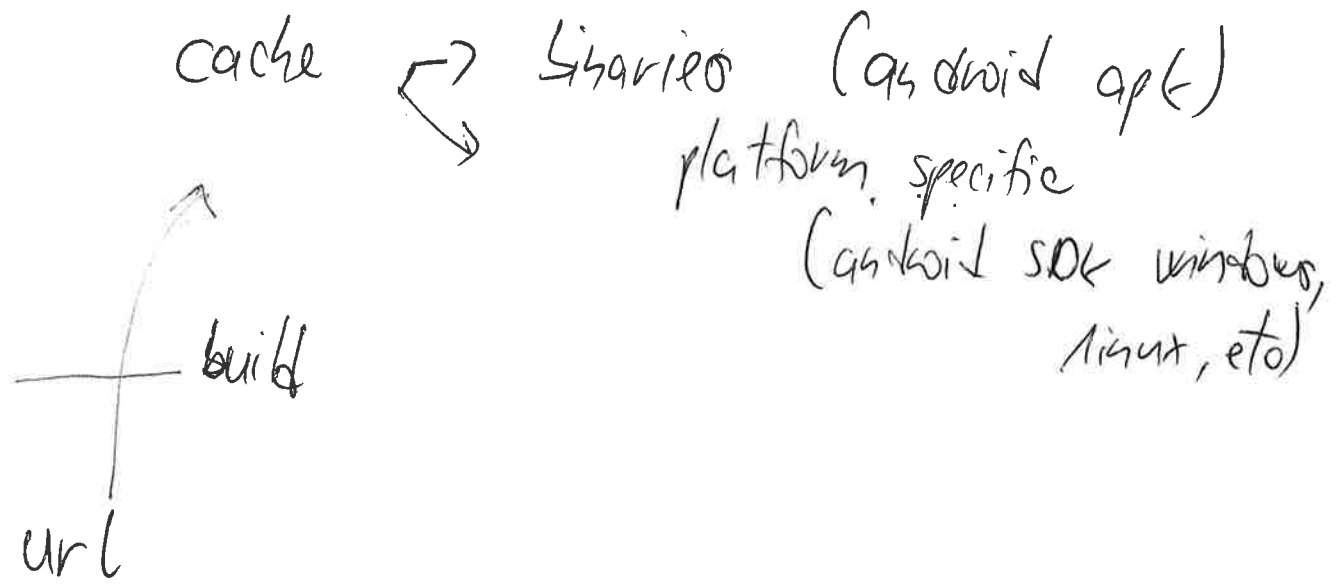 cache binaries (android apk)
platform specific
(android SDK windows,
linux, etc)
build
url